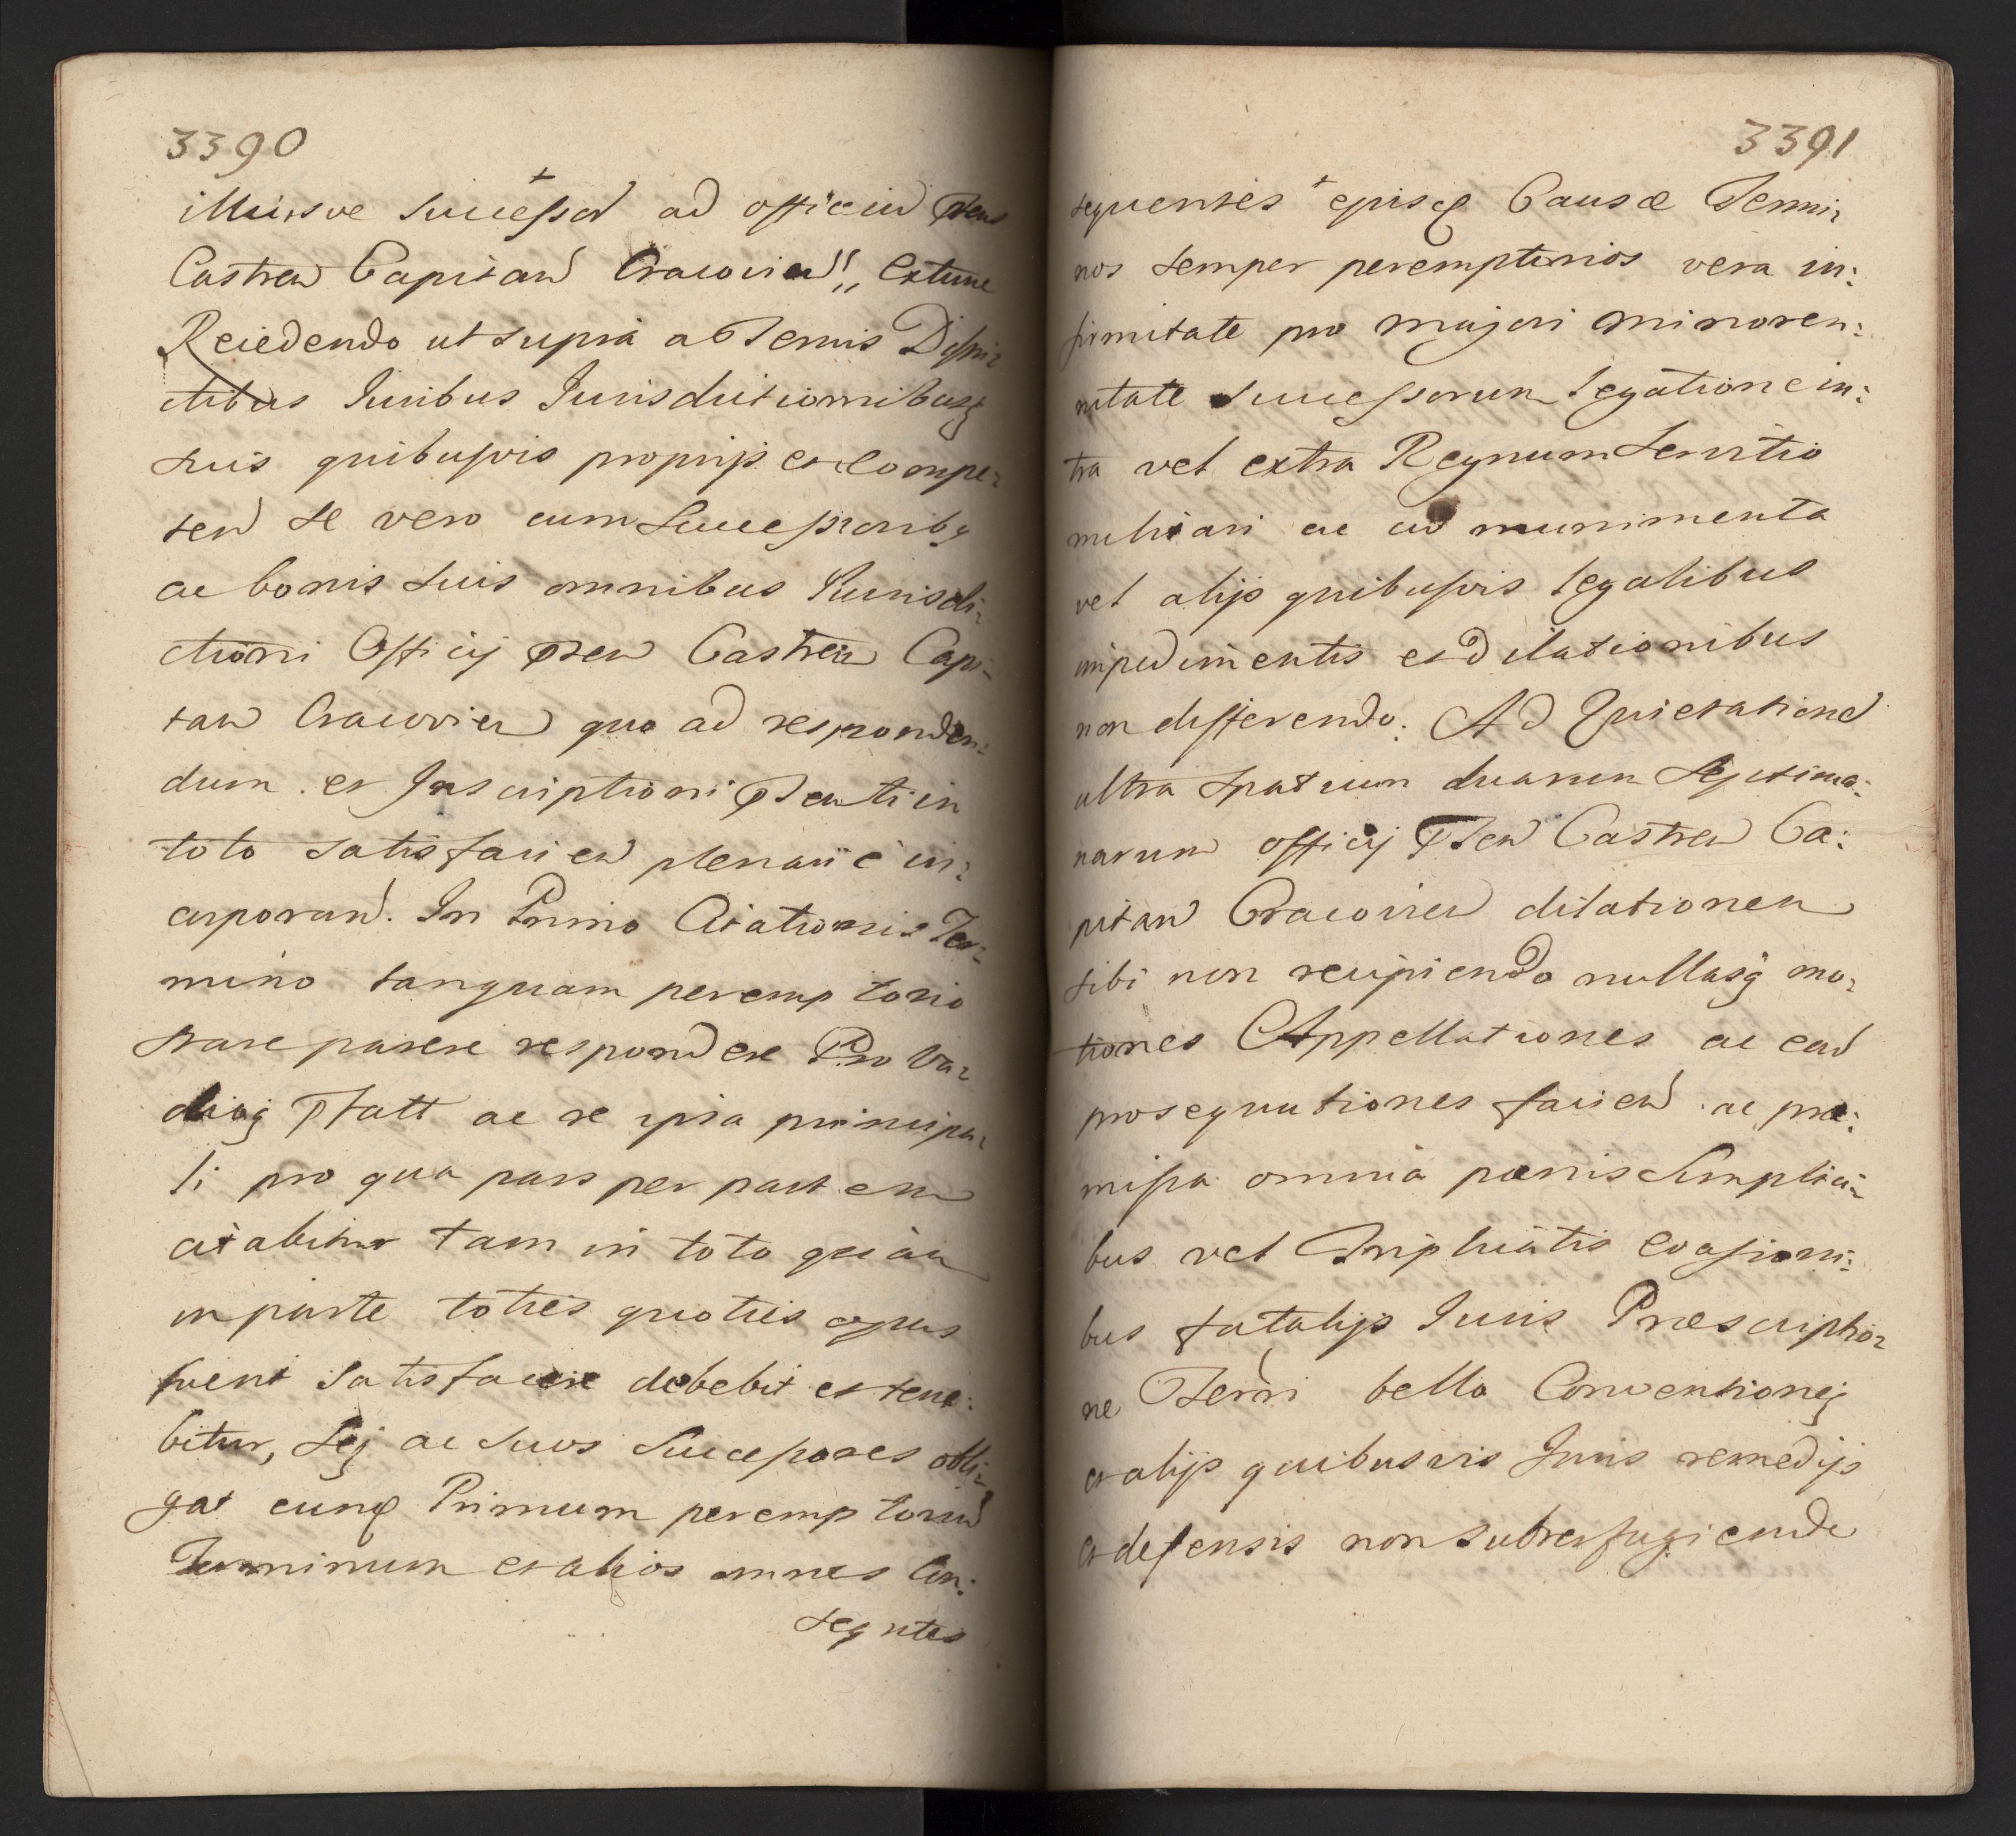 3390
illiusve Successor ad officiu Psens
Castren Capitan Cracovien,, Extunc
Recedendo ut supra a Terris Distri-
ctibus Juribus Jurisdictionibusq
suis quibusvis proprijs et Compe-
ten se vero cum Successoribq
ac bonis suis omnibus Jurisdi-
ctioni Officij Psen Castren Capi-
tan Cracovien quo ad responden-
dum et Inscriptioni Psenti in
toto satisfacien plenarie in-
corporand. In Primo Citationis Ter-
mino tanquam peremptorio
stare parere respondere Pro Va-
dioq Pfatt ac re ipsa principa-
li pro qua pars per partem
citabitur tam in toto quam
in parte toties quoties opus
fuerit satisfacere debebit et tene-
bitur, Seq ac suos Successores obli-
gat eunq Primum peremptoriu
Terminum et alios omnes Con:
seqntes
3391
sequentes ejusq Causæ Termi-
nos semper peremptorios vera in:
firmitate pro majori minoren:
nitate Successorum legatione in:
tra vel extra Regnum servitio
militari ac ad munimenta
vel alijs quibusvis legalibus
impedimentis et dilationibus
non differendo. Ad Quietatione
ultra spatium duarum Septima:
narum officij Psen Castren Ca:
pitan Cracovien dilationem
sibi non recipiendo nullasq mo-
tiones Appellationes ac ear
prosequutiones facien ac præ:
missa omnia pœnis simplici-
bus vel Triplicatis Evasioni:
bus fatalijs Juris Præscriptio-
ne Terri bello Conventioneq
et alijs quibusvis Juris remedijs
et defensis non subterfugiendo